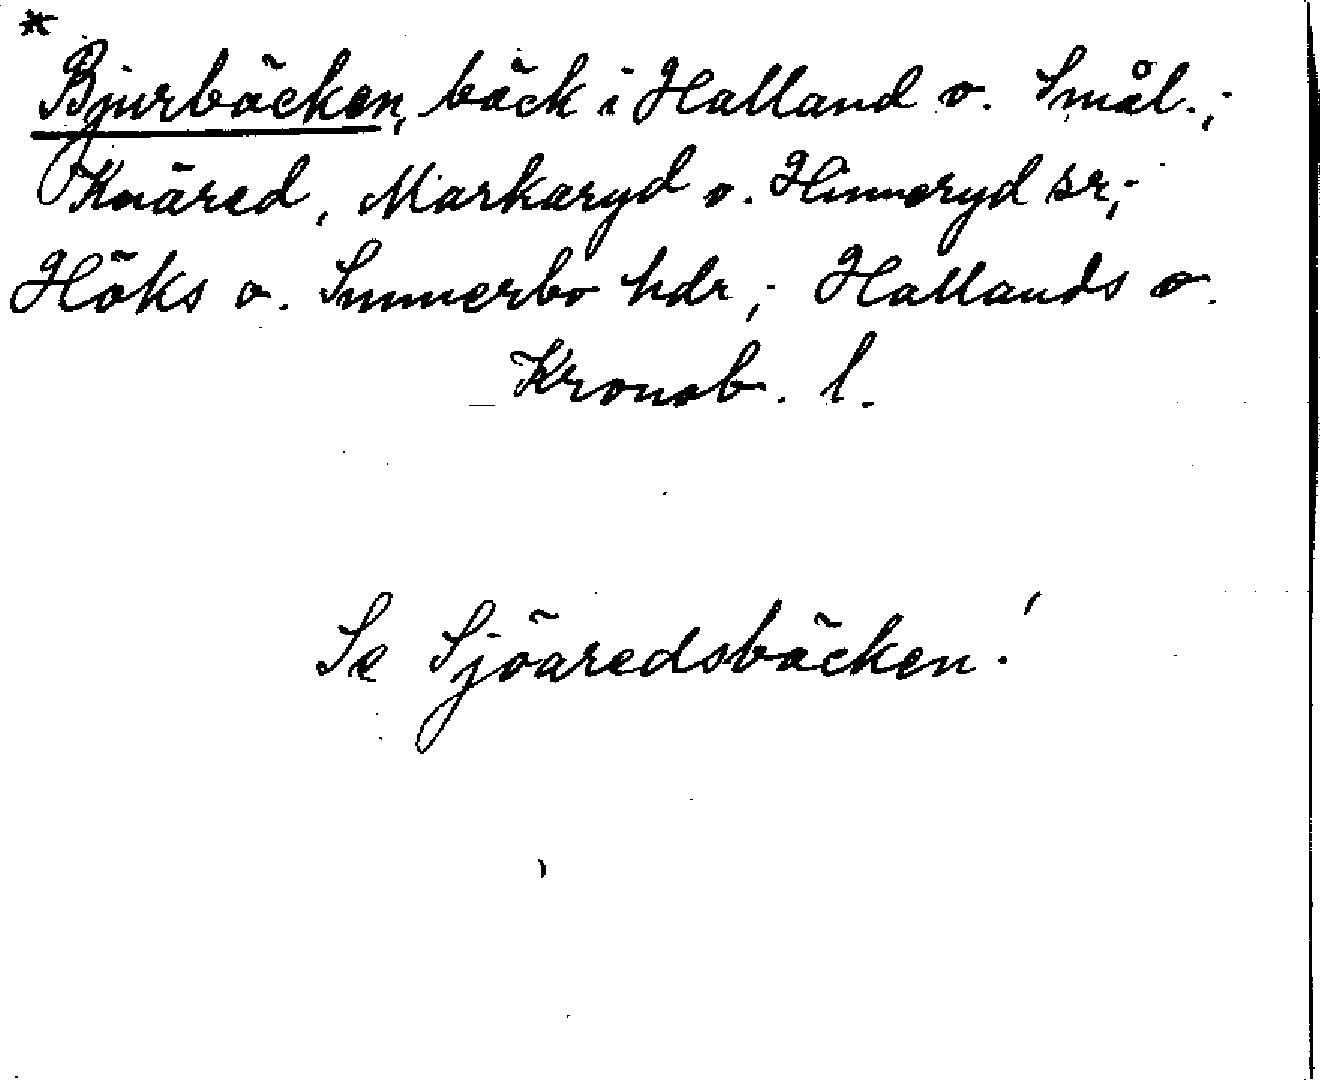 *
Bjurbäcken, bäck i Halland o. Smål.,-
Knäred, Markaryd o. Hinneryd sr,-
Höks o. Sunnerbo hdr,- Hallands o.
Kronob. l.
Se Sjöaredsbäcken!